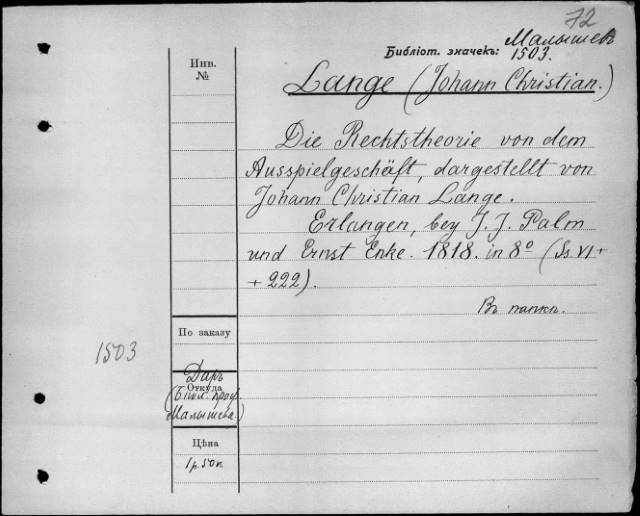 72
Библіот. значекъ: Малышевъ
1503.
Инв.
№
Lange (Johann Christian.)
Die Rechtstheorie von dem
Ausspielgeschäft, dargestellt von
Johann Christian Lange.
Erlangen, bey J. J. Palm
und Ernst Enke. 1818. in 8º (Ss VI +
+ 222).
Въ папкѣ.
По заказу
1503
Даръ
Откуда
(Библ. проф.
Малышева.)
Цѣна
1 р. 50 к.